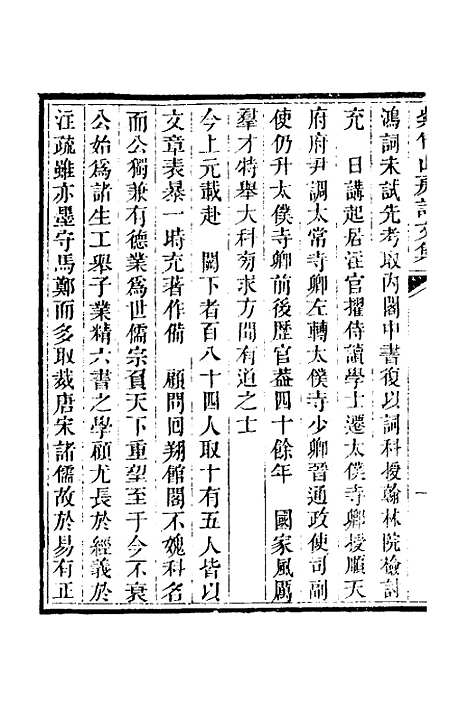 紫竹山房詩文集
鴻詞未試先考取内閣中書復以詞科授翰林院檢討
充　日講起居注官擢侍讀學士遷太僕寺卿授順天
府府尹調太常寺卿左轉太僕寺少卿晉通政使司副
使仍升太僕寺卿前後歷官葢四十餘年　國家風厲
羣才特舉大科旁求方聞有道之士
今上元載赴　闕下者百八十四人取十有五人皆以
文章表暴一時充著作備　顧問回翔館閣不媿科名
而公獨兼有德業爲世儒宗負天下重望至于今不衰
公始爲諸生工舉子業精六書之學顧尤長於經義於
注疏雖亦墨守馬鄭而多取裁唐宋諸儒故於易有正